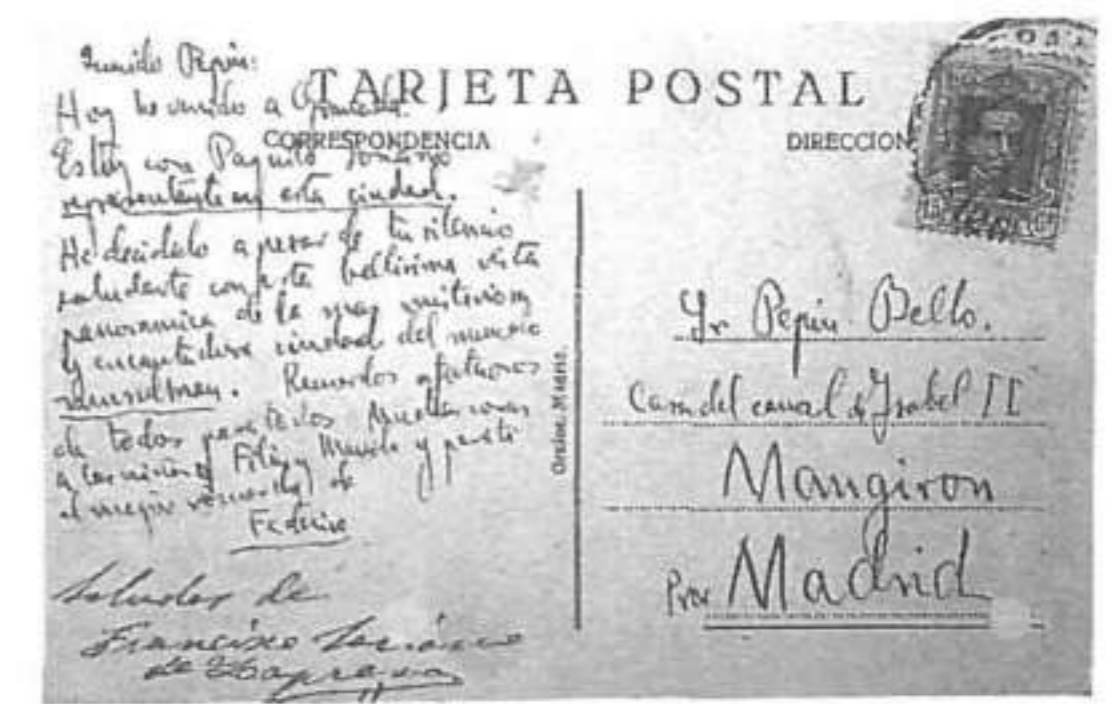 TARJETA POSTAL
CORRESPONDENCIA
DIRECCION
Querido Pepín:
Hoy he venido a Granada.
Estoy con Paquito Soriano
representante en esta ciudad.
He decidido a pesar de tu silencio
saludarte con esta bellísima vista
panoramica de la mas misteriosa
y encantadora ciudad del mundo
musulman. Recuerdos afectuosos
de todos para todos
a las niñas y para ti
el mejor recuerdo de
Federico
Saludos de
Francisco Soriano
de Lapresa
Madrid.
Sr Pepin Bello.
Casa del canal de Isabel II
Mangiron
Por Madrid